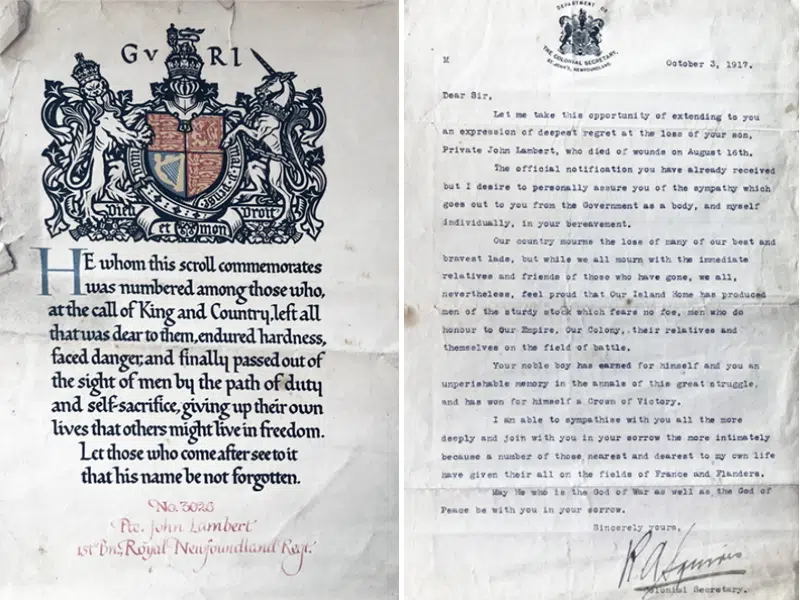 GVRI
Dieu et mon droit
HE whom this scroll commemorates
was numbered among those who,
at the call of King and Country, left all
that was dear to them, endured hardness,
faced danger, and finally passed out of
the sight of men by the path of duty
and self-sacrifice, giving up their own
lives that others might live in freedom.
Let those who come after see to it
that his name be not forgotten.
No. 3026
Pte. John Lambert
1st Bn, Royal Newfoundland Regt.
DEPARTMENT OF
THE COLONIAL SECRETARY,
ST. JOHN'S, NEWFOUNDLAND.
M
October 3, 1917.
Dear Sir,
Let me take this opportunity of extending to you
an expression of deepest regret at the loss of your son,
Private John Lambert, who died of wounds on August 16th.
The official notification you have already received
but I desire to personally assure you of the sympathy which
goes out to you from the Government as a body, and myself
individually, in your bereavement.
Our country mourns the loss of many of our best and
bravest lads, but while we all mourn with the immediate
relatives and friends of those who have gone, we all,
nevertheless, feel proud that Our Island Home has produced
men of the sturdy stock which fears no foe, men who do
honour to Our Empire, Our Colony, their relatives and
themselves on the field of battle.
Your noble boy has earned for himself and you an
unperishable memory in the annals of this great struggle,
and has won for himself a Crown of Victory.
I am able to sympathise with you all the more
deeply and join with you in your sorrow the more intimately
because a number of those nearest and dearest to my own life
have given their all on the fields of France and Flanders.
May He who is the God of War as well as the God of
Peace be with you in your sorrow.
Sincerely yours,
R A Squires
Colonial Secretary.